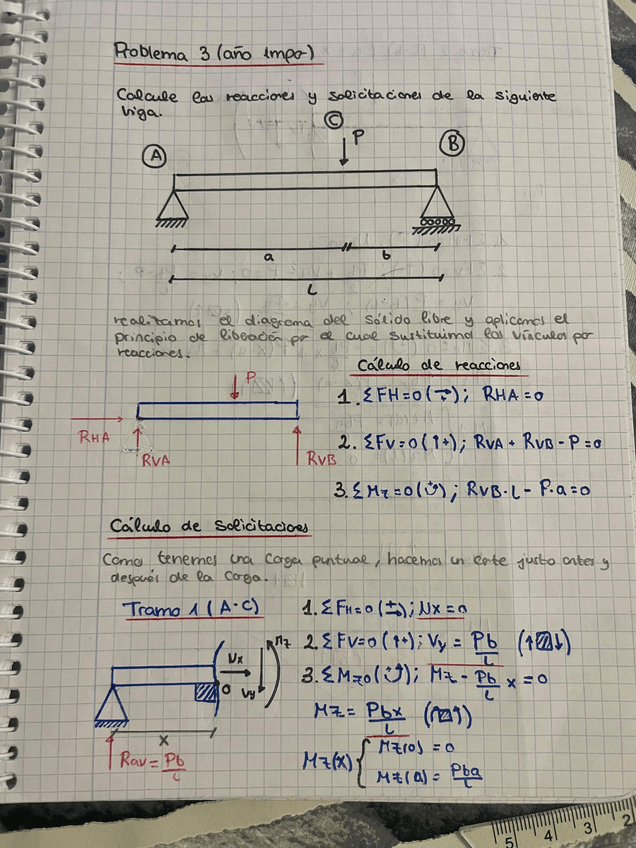 Problema 3 (año impar)
Calcule las reacciones y solicitaciones de la siguiente
viga.
C
P
A
B
a
b
L
realizamos el diagrama del sólido libre y aplicamos el
principio de liberación por el cual sustituimos los vínculos por
reacciones.
Cálculo de reacciones
P
RHA
RVA
RVB
1. ΣFH=0 (→+); RHA=0
2. ΣFV=0 (↑+); RVA + RVB - P=0
3. ΣMz=0 (↺+); RVB·L - P·a=0
Cálculo de Solicitaciones
Como tenemos una carga puntual, hacemos un corte justo antes y
después de la carga.
Tramo 1 (A-C)
1. ΣFH=0 (→+); Nx=0
2. ΣFV=0 (↑+); Vy = Pb/L (↑▨↓)
3. ΣMz0 (↺+); Mz - Pb/L x = 0
Mz = Pbx/L
Mz(x) { Mz(0) = 0
Mz(a) = Pba/L
Nx
Mz
Vy
O
x
Rav = Pb/L
5 4 3 2